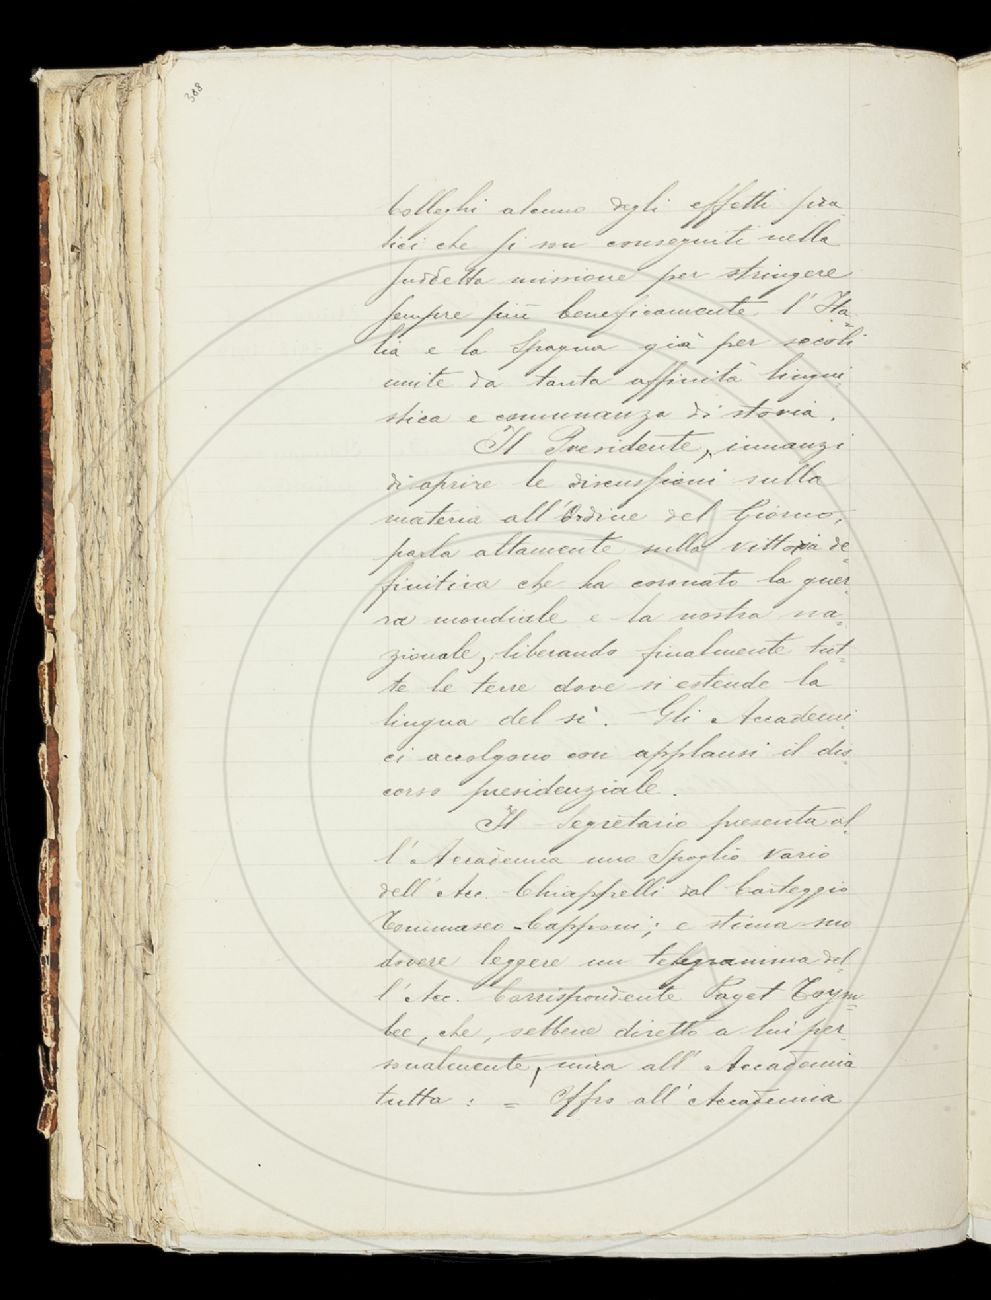 388
Colleghi alcuno degli effetti pra
tici che si son conseguiti nella
suddetta missione per stringere
sempre più beneficamente l'Ita-
lia e la Spagna già per secoli
unite da tanta affinità lingui
stica e comunanza di storia.
Il Presidente, innanzi
di aprire le discussioni sulla
materia all'Ordine del Giorno,
parla altamente sulla vittoria de-
finitiva che ha coronato la guer-
ra mondiale e la nostra na-
zionale, liberando finalmente tut-
te le terre dove si estende la
lingua del sì. Gli Accademi-
ci accolgono con applausi il dis-
corso presidenziale.
Il Segretario presenta al-
l'Accademia uno Spoglio vario
dell'Acc. Chiappelli dal Carteggio
Tommaseo-Capponi; e stima suo
dovere leggere un telegramma del-
l'Acc. Corrispondente Paget Toyn=
bee, che, sebbene diretto a lui per-
sonalmente, mira all'Accademia
tutta: = Offro all'Accademia